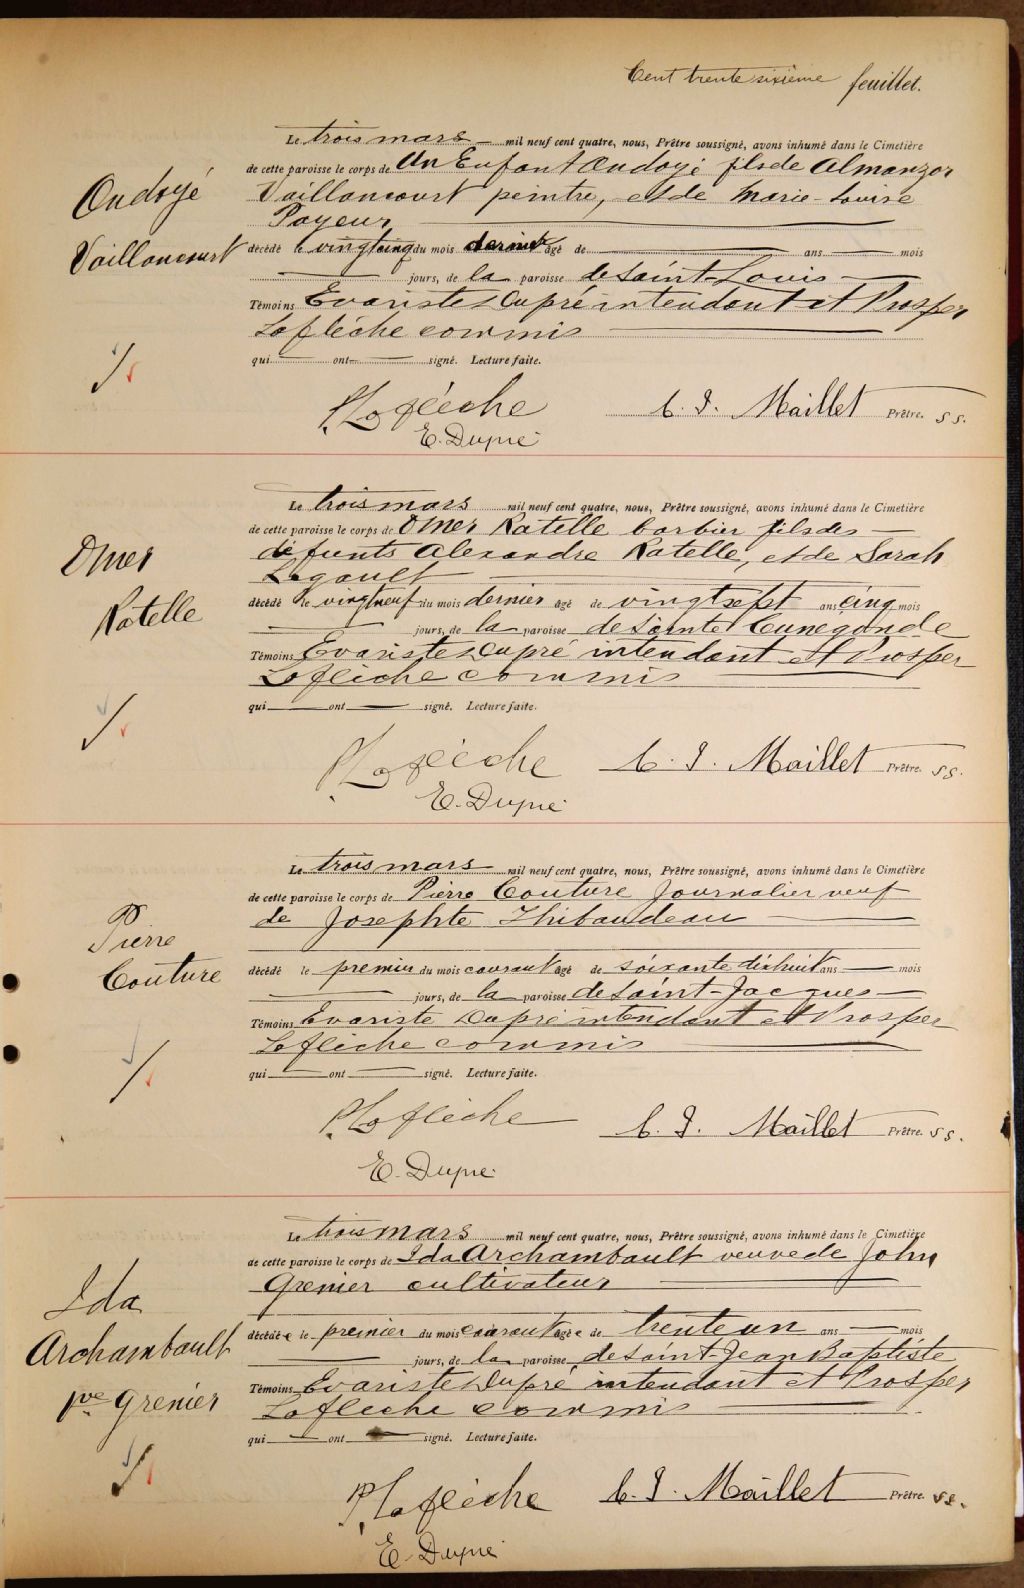 Cent trente sixième feuillet.
Ondoyé
Vaillancourt
Le trois mars mil neuf cent quatre, nous, Prêtre soussigné, avons inhumé dans le Cimetière
de cette paroisse le corps de Un Enfant Ondoyé fils de Almanzor
Vaillancourt peintre, et de Marie-Louise
Payeur,
décédé le vingtcinq du mois dernier âgé de ans mois
jours, de la paroisse de Saint-Louis
Témoins Evariste Dupré intendant et Prosper
Laflèche commis
qui ont signé. Lecture faite.
P. Laflèche C. J. Maillet Prêtre. SS.
E. Dupré
Omer
Ratelle
Le trois mars mil neuf cent quatre, nous, Prêtre soussigné, avons inhumé dans le Cimetière
de cette paroisse le corps de Omer Ratelle barbier fils des
défunts Alexandre Ratelle, et de Sarah
Legault
décédé le vingtneuf du mois dernier âgé de vingtsept ans cinq mois
jours, de la paroisse de Sainte Cunégonde
Témoins Evariste Dupré intendant et Prosper
Laflèche commis
qui ont signé. Lecture faite.
P. Laflèche C. J. Maillet Prêtre. SS.
E. Dupré
Pierre
Couture
Le trois mars mil neuf cent quatre, nous, Prêtre soussigné, avons inhumé dans le Cimetière
de cette paroisse le corps de Pierre Couture Journalier veuf
de Josephte Thibaudeau
décédé le premier du mois courant âgé de soixante dixhuit ans mois
jours, de la paroisse de Saint-Jacques
Témoins Evariste Dupré intendant et Prosper
Laflèche commis
qui ont signé. Lecture faite.
P. Laflèche C. J. Maillet Prêtre. SS.
E. Dupré
Ida
Archambault
Vve Grenier
Le trois mars mil neuf cent quatre, nous, Prêtre soussigné, avons inhumé dans le Cimetière
de cette paroisse le corps de Ida Archambault veuve de John
Grenier cultivateur
décédée le premier du mois courant âgée de trente un ans mois
jours, de la paroisse de Saint-Jean Baptiste
Témoins Evariste Dupré intendant et Prosper
Laflèche commis
qui ont signé. Lecture faite.
P. Laflèche C. J. Maillet Prêtre. SS.
E. Dupré